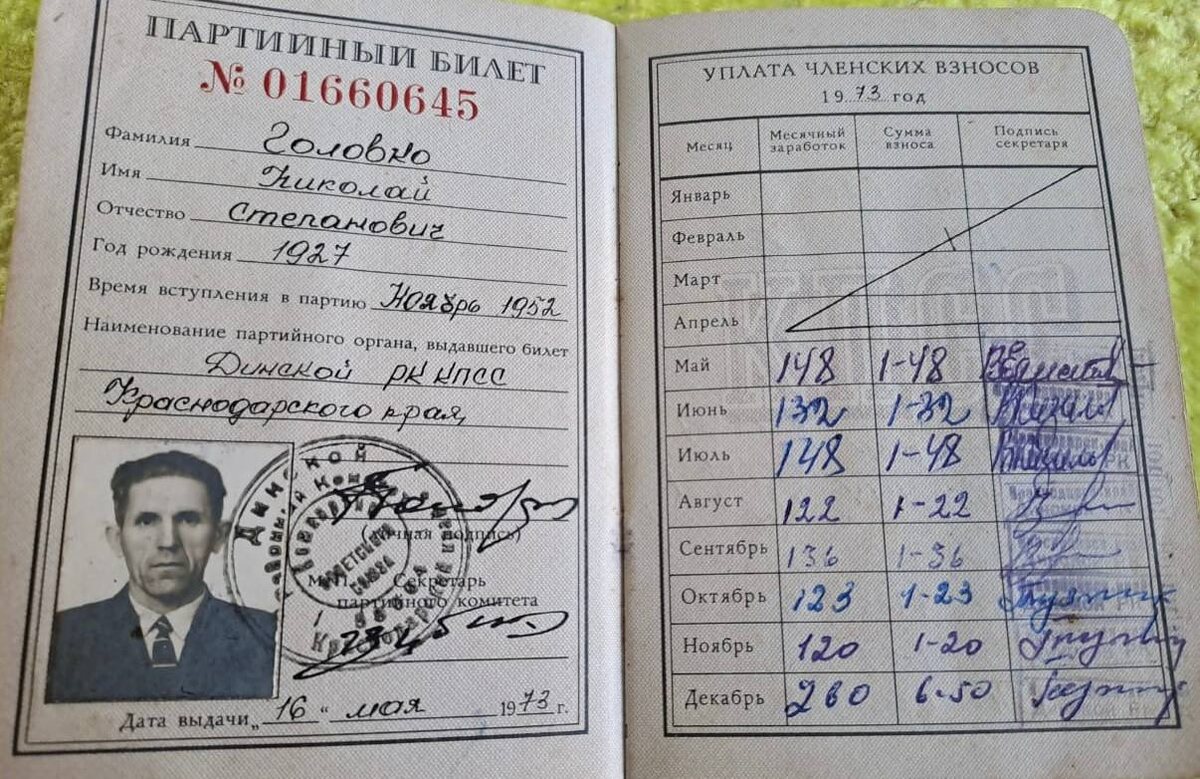 ПАРТИЙНЫЙ БИЛЕТ
№ 01660645
Фамилия Головко
Имя Николай
Отчество Степанович
Год рождения 1927
Время вступления в партию Ноябрь 1952
Наименование партийного органа, выдавшего билет
Динской РК КПСС
Краснодарского края,
(личная подпись)
М.П. Секретарь
партийного комитета
Дата выдачи „16“ мая 1973 г.
УПЛАТА ЧЛЕНСКИХ ВЗНОСОВ
1973 год
Месяц Месячный заработок Сумма взноса Подпись секретаря
Январь
Февраль
Март
Апрель
Май 148 1-48
Июнь 132 1-32
Июль 148 1-48
Август 122 1-22
Сентябрь 136 1-36
Октябрь 123 1-23
Ноябрь 120 1-20
Декабрь 260 6-50